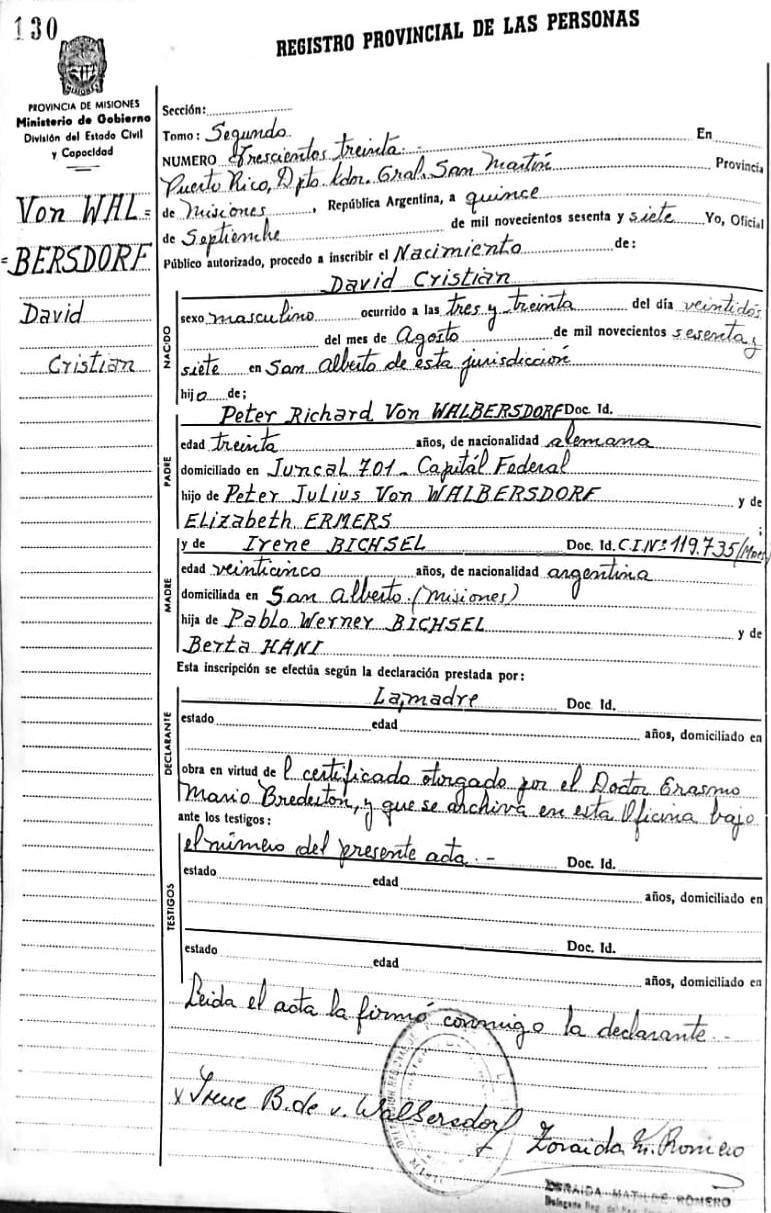 130
REGISTRO PROVINCIAL DE LAS PERSONAS
MISIONES
PROVINCIA DE MISIONES
Ministerio de Gobierno
División del Estado Civil
y Capacidad
Von WAL=
=BERSDORF
David
Cristian
Sección:
Tomo: Segundo.
En
NUMERO Trescientos treinta.-
Puerto Rico, Dpto. Ldor. Gral. San Martín Provincia
de Misiones, República Argentina, a quince
de Septiembre de mil novecientos sesenta y siete Yo, Oficial
Público autorizado, procedo a inscribir el Nacimiento de:
David Cristian
NACIDO
sexo masculino ocurrido a las tres y treinta del día veintidós
del mes de Agosto de mil novecientos sesenta y
siete en San Alberto de esta jurisdicción
hijo de;
PADRE
Peter Richard Von WALBERSDORF Doc. Id.
edad treinta años, de nacionalidad alemana
domiciliado en Juncal 701 - Capitál Federal
hijo de Peter Julius Von WALBERSDORF y de
Elizabeth ERMERS ;
MADRE
y de Irene BICHSEL Doc. Id. C.I.Nº 119.735/Mnes
edad veinticinco años, de nacionalidad argentina
domiciliada en San Alberto (Misiones)
hija de Pablo Werner BICHSEL y de
Berta HÄNI
Esta inscripción se efectúa según la declaración prestada por:
DECLARANTE
La madre Doc. Id.
estado edad años, domiciliado en
obra en virtud de l certificado otorgado por el Doctor Erasmo
Mario Brederton, y que se archiva en esta Oficina bajo
ante los testigos:
TESTIGOS
el número del presente acta.- Doc. Id.
estado edad años, domiciliado en
Doc. Id.
estado edad años, domiciliado en
Leida el acta la firmó conmigo la declarante.-
x Irene B. de v. Walbersdorf
Zoraida M. Romero
ZORAIDA MATILDE ROMERO